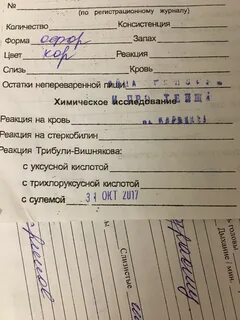 №
(по регистрационному журналу)
Количество Консистенция
Форма офор Запах
Цвет кор Реакция
Слизь Кровь
Остатки непереваренной пищи
Химическое исследование
Реакция на кровь
Реакция на стеркобилин
Реакция Трибули-Вишнякова:
с уксусной кислотой
с трихлоруксусной кислотой
с сулемой 31 ОКТ 2017
Слизистые
Дыхание / мин.